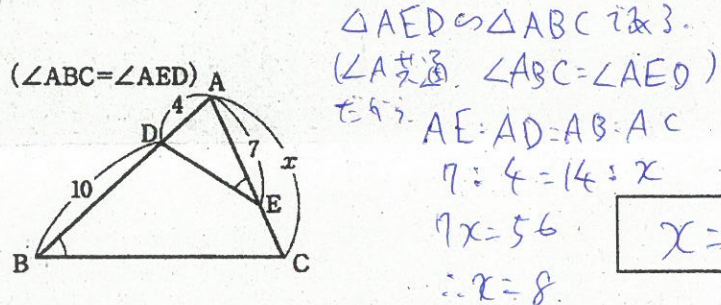 (∠ABC=∠AED)
A
4
D
7
x
10
E
B
C
△AED∽△ABC である.
(∠A共通. ∠ABC=∠AED)
だから.
AE:AD=AB:AC
7:4=14:x
7x=56
∴x=8.
x=